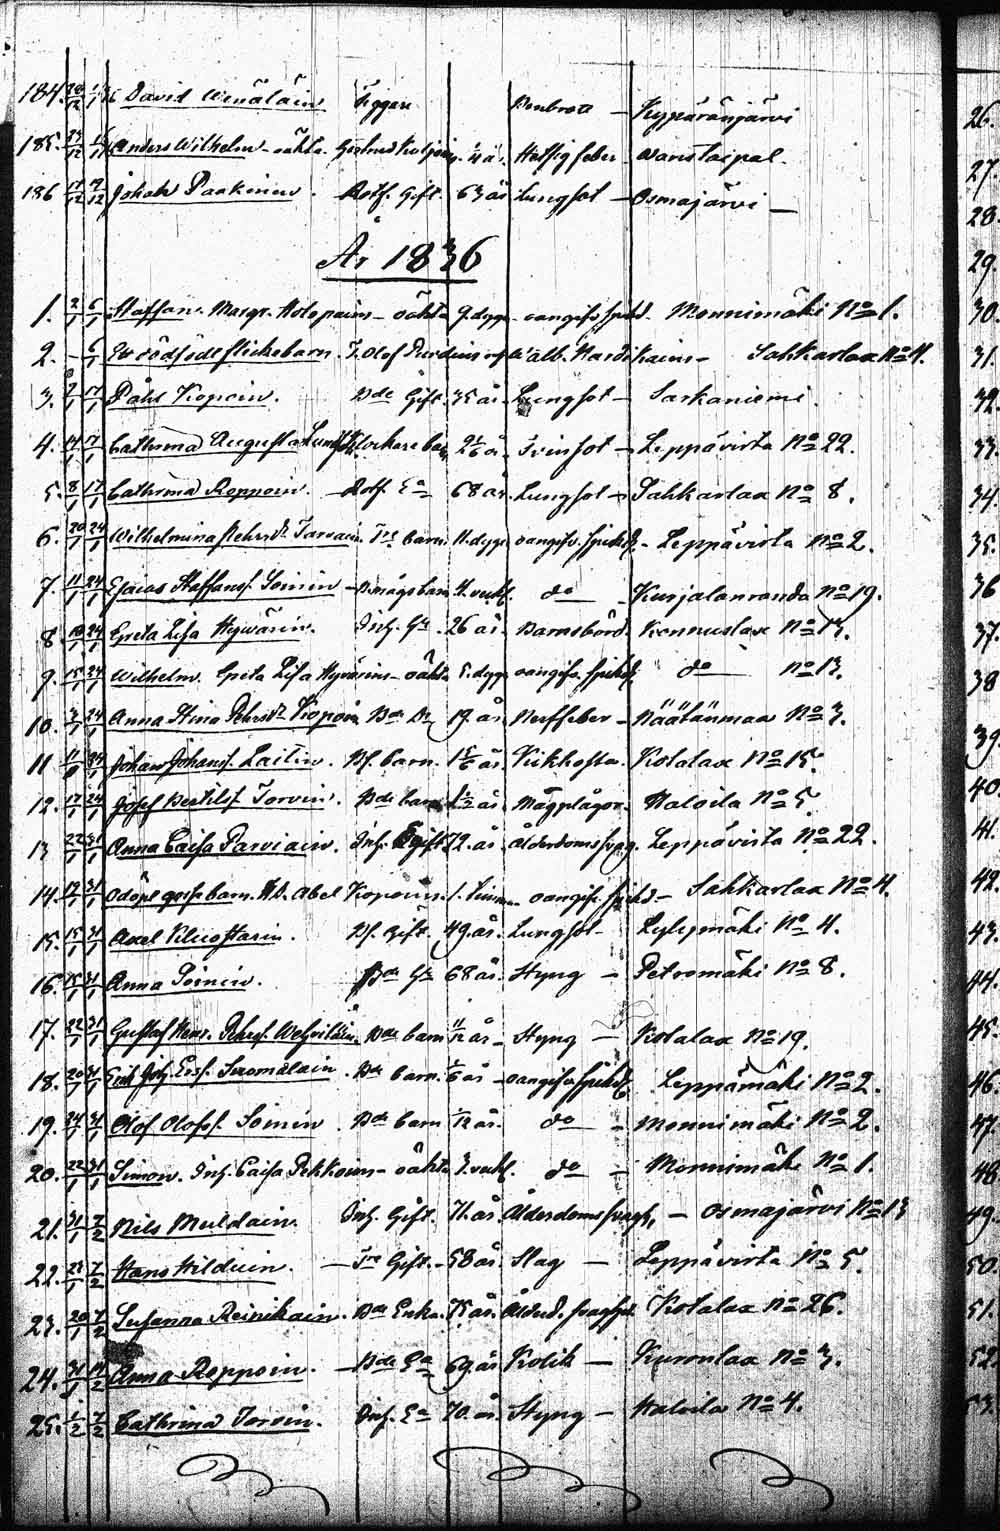 184. 28/12 David Wenäläin Tiggare Benbrott - Kypäränjärvi
185. 23/12 Anders Wilhelm - oäkta. ½ år. Hettsig feber - Wanstaipal.
186 12/12 Johan Paakinin. Rotf. Gift. 63 år Lungsot - Osmajärvi -
År 1836
1. 2/1 6/1 Staffan. Margr. Holopains - oäkta 9. dygn - oangifv. sjukd. Monnimäki No 1.
2. - 6/1 Ett dödfödt flickebarn. Sahkarlax No 4.
3. 7/1 17/1 Påhl Kopoin. Bde Gift. 35 år. Lungsot - Sarkaniemi.
4. 14/1 17/1 Cathrina Augusta Lockare barn 2½ år. Tvinsot - Leppävirta No 22.
5. 8/1 17/1 Cathrina Roppoin. - Rotf. Ea 68 år. Lungsot - Sahkarlax No 8.
6. 20/1 24/1 Wilhelmina Pehrsdr Tarvain Trs barn. 11. dygn oangifv. sjukd. - Leppävirta No 2.
7. 11/1 24/1 Esaias Staffanss. Soinin - Bmågs barn 4. veck. do - Kurjalanranda No 19.
8. 18/1 24/1 Greta Lisa Hyvärin. Inh. Ga. 26 år. Barnsbörd. Konnuslax No 13.
9. 15/1 24/1 Wilhelm. Greta Lisa Hyvärins - oäkta 5. dygn oangifv. sjukd. do No 13.
10. 3/1 24/1 Anna Stina Pehrsdr Kopoin Bde Dr 19. år. Nerffeber - Näätänmaa No 3.
11 11/1 24/1 Johan Johanss. Laitin. Bf. barn. 1 5/6 år. Kikhosta. Kotalax No 15.
12. 17/1 24/1 Josef Bertilss. Torvin. Bde barn 1½ år. Magplågor. Kaloila No 5
13 22/1 31/1 Anna Caisa Parviain. Inh. Egift 72. år. Ålderdomssvag. Leppävirta No 22.
14. 17/1 31/1 Odöpt gossebarn. Abel Kopoins. 1. timma oangifv. sjukd - Sahkarlax No 4.
15. 15/1 31/1 Axel Vilhottarin. Bf. Gift. 49. år. Lungsot - Lylymäki No 4.
16. 15/1 31/1 Anna Soinin. Bde Ga 68 år. Styng - Petromäki No 8.
17. 22/1 31/1 Gustaf Henr. Pehrss. Bde barn 11/12 år - Styng - Kotalax No 19.
18. 20/1 31/1 Erik Joh. Erss. Suomalain. Bde barn. 1/6 år - oangifv. sjukd. Leppämäki No 2.
19. 24/1 31/1 Olof Olofss. Soinin Bde barn 1/12 år. do - Monnimäki No 2.
20. 22/1 31/1 Simon. Inh. Caisa Pekkoins - oäkta 3. veck. do - Monnimäki No 1.
21. 31/1 7/2 Nils Muldain Inh. Gift. 71. år. Ålderdomssvagh. - Osmajärvi No 13
22. 28/1 7/2 Hans Hilduin. - Tre Gift. - 58 år. Slag - Leppävirta No 5.
23. 20/1 7/2 Susanna Reinikain. Bde Enka. 75 år. Ålderd. svaghet Kotalax No 26.
24. 31/1 14/2 Anna Roppoin. - Bde Ea 69 år Kolik - Kurolax No 3.
25. 1/2 7/2 Cathrina Torvin. Inh. Ea 70. år. Styng - Kaloila No 4.
26.
27.
28.
29.
30.
31.
32.
33.
34.
35.
36
37
38
39.
40.
41.
42.
43.
44.
45.
46.
47.
48
49.
50.
51.
52.
53.